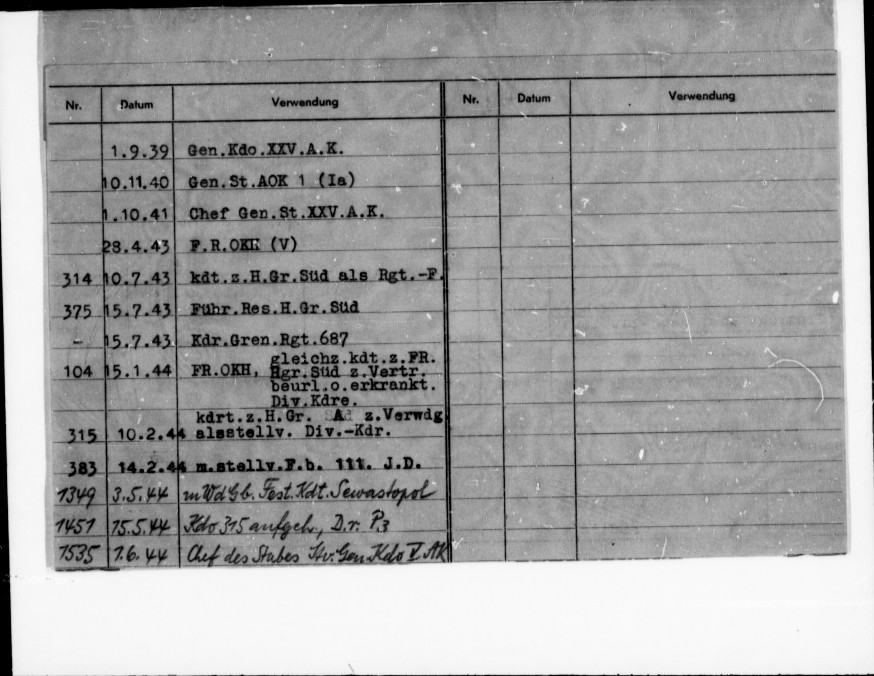 Nr. Datum Verwendung Nr. Datum Verwendung
1.9.39 Gen.Kdo.XXV.A.K.
10.11.40 Gen.St.AOK 1 (Ia)
1.10.41 Chef Gen.St.XXV.A.K.
28.4.43 F.R.OKH (V)
314 10.7.43 kdt.z.H.Gr.Süd als Rgt.-F.
375 15.7.43 Führ.Res.H.Gr.Süd
- 15.7.43 Kdr.Gren.Rgt.687
gleichz.kdt.z.FR.
104 15.1.44 FR.OKH, Hgr.Süd z.Vertr.
beurl.o.erkrankt.
Div.Kdre.
kdrt.z.H.Gr. A z.Verwdg
315 10.2.44 alsstellv. Div.-Kdr.
383 14.2.44 m.stellv.F.b. 111. J.D.
1349 3.5.44 mWdGb. Fest.Kdt. Sewastopol
1451 15.5.44 Kdo 315 aufgeh., D.r. P3
1535 1.6.44 Chef des Stabes Stv. Gen Kdo V. AK